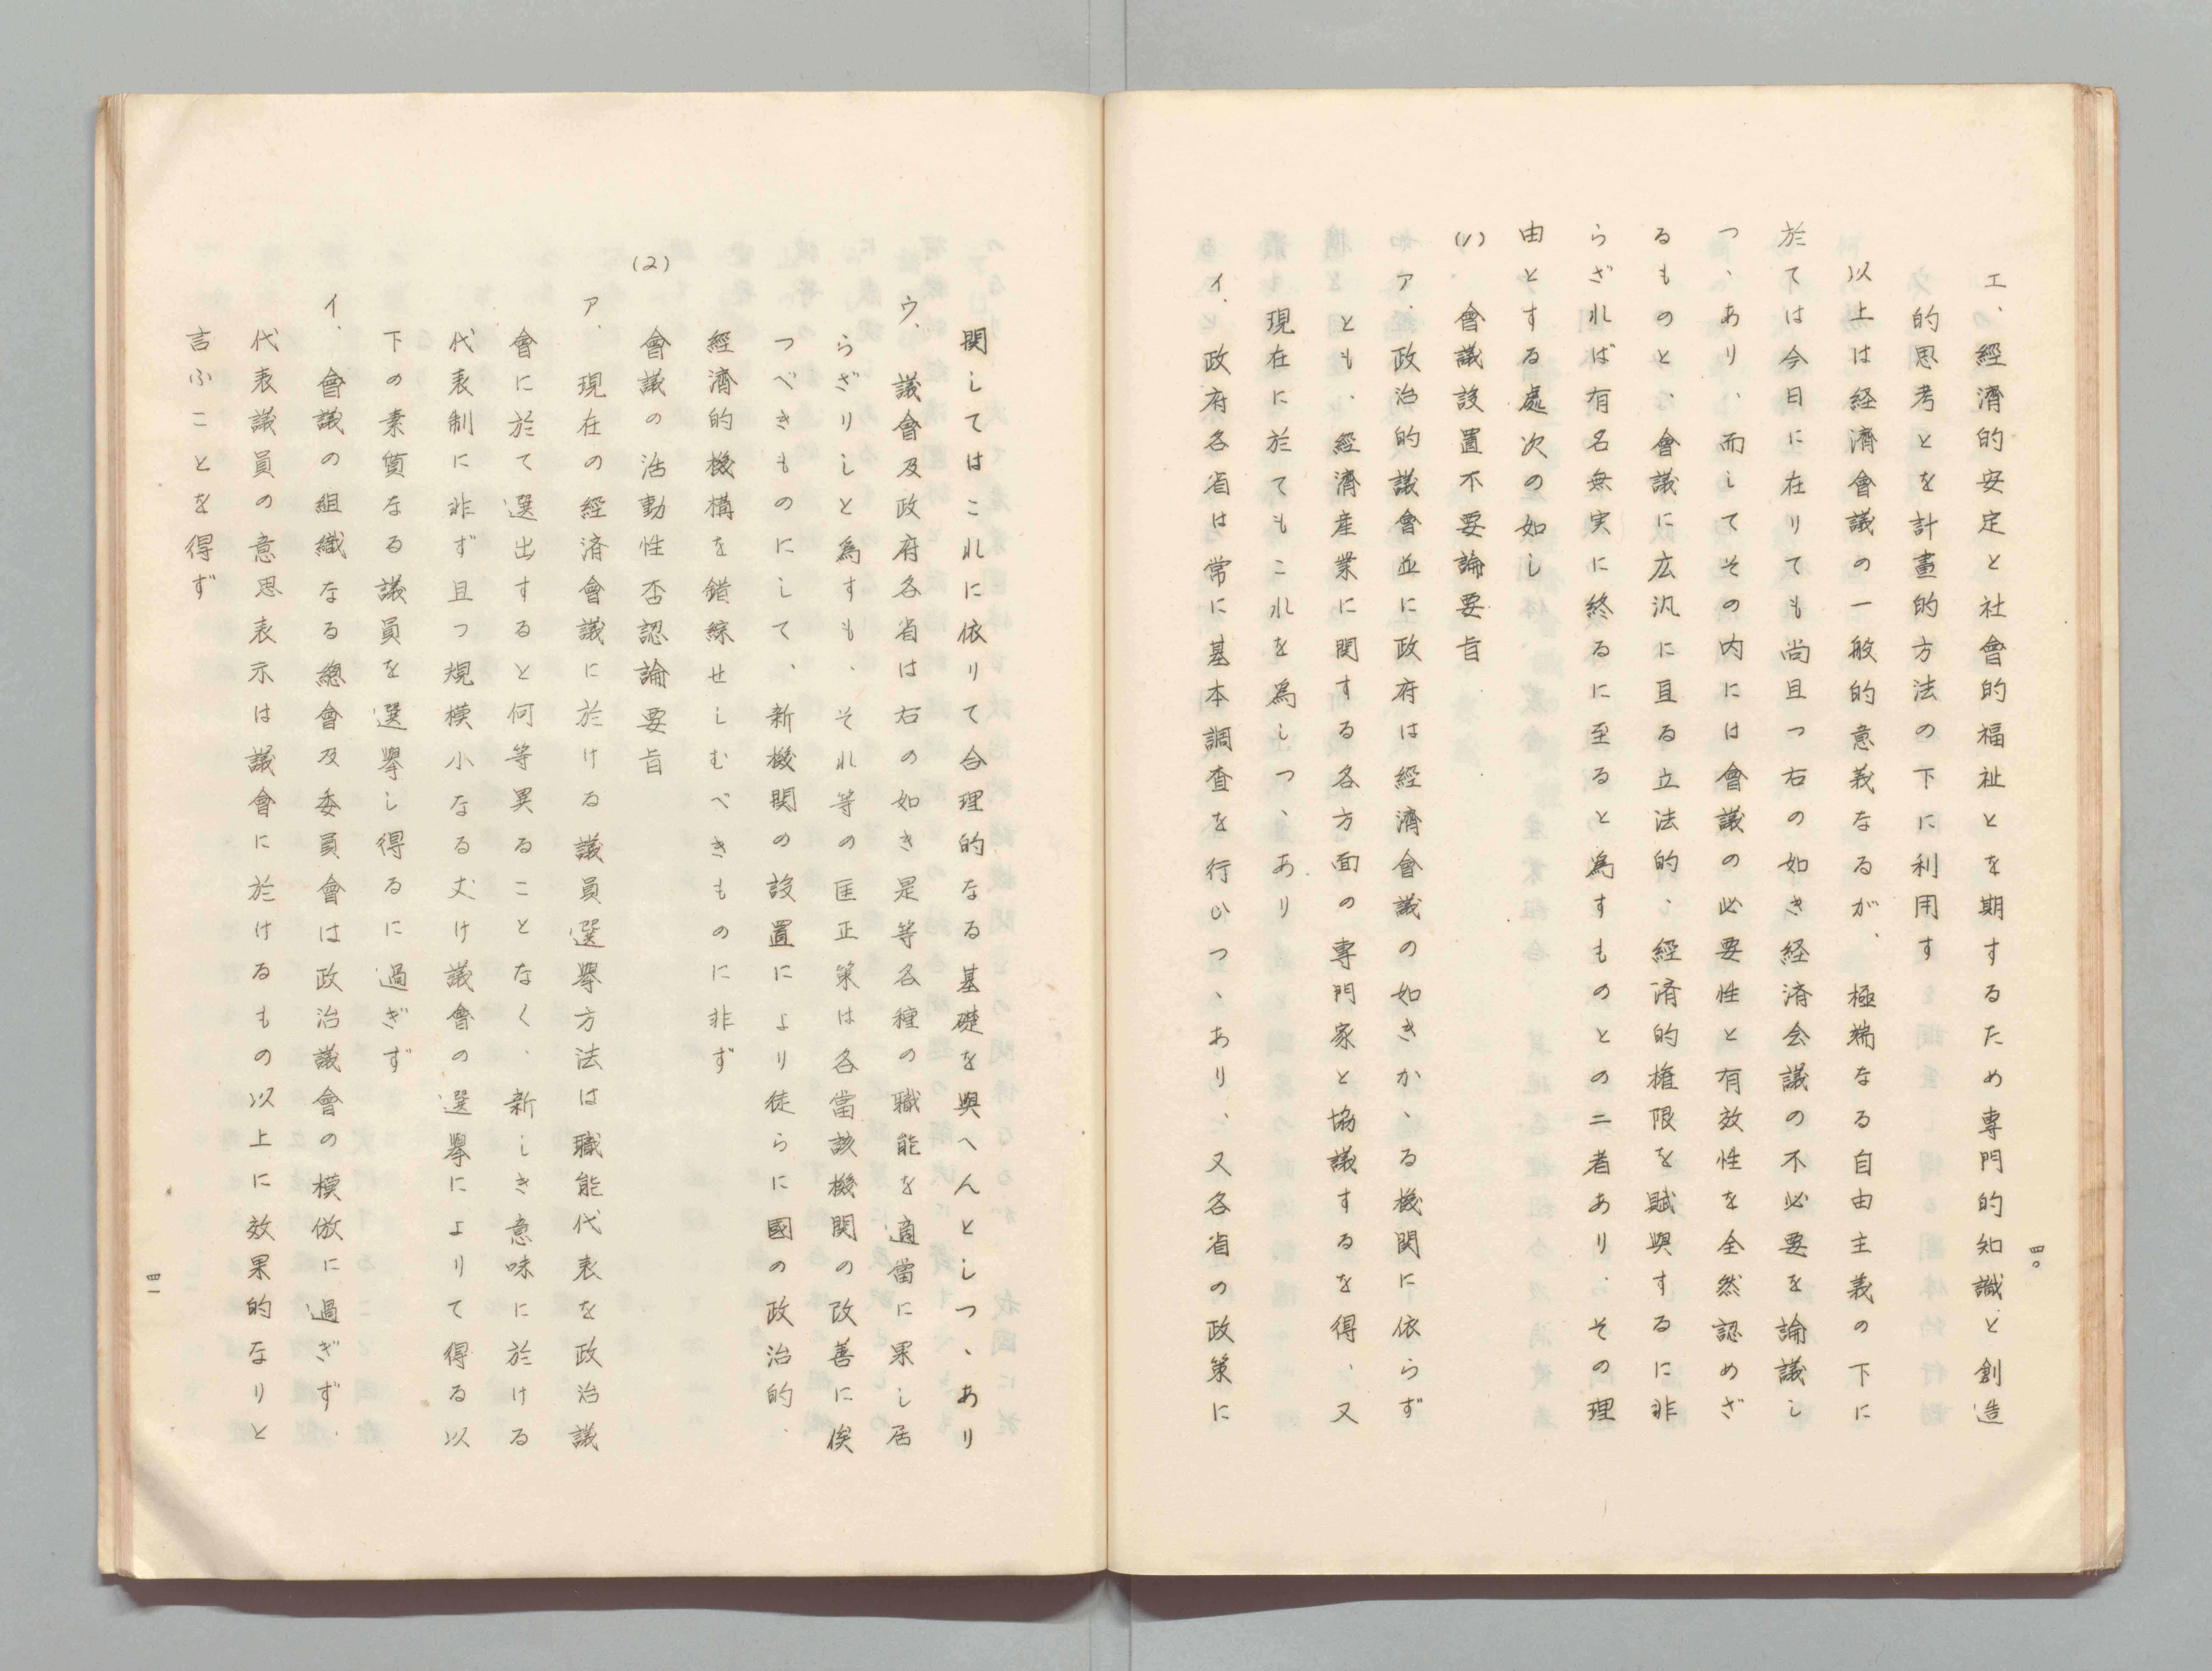 エ、經濟的安定と社會的福祉とを期するため専門的知識と創造
的思考とを計畫的方法の下に利用す
以上は経濟會議の一般的意義なるが、極端なる自由主義の下に
於ては今日に在りても尚且つ右の如き経済会議の不必要を論議し
つ、あり、而してその内には會議の必要性と有效性を全然認めざ
るものと、會議に広汎に亘る立法的、經済的権限を賦與するに非
らざれば有名無実に終るに至ると為すものとの二者あり、その理
由とする處次の如し
(1) 會議設置不要論要旨
ア、政治的議會並に政府は經濟會議の如きか、る機関に依らず
とも、經濟産業に関する各方面の専門家と協議するを得、又
現在に於てもこれを為しつ、あり
イ、政府各省は常に基本調査を行ひつ、あり、又各省の政策に
四〇
関してはこれに依りて合理的なる基礎を與へんとしつ、あり
ウ、議會及政府各省は右の如き是等各種の職能を適當に果し居
らざりしと為すも、それ等の匡正策は各當該機関の改善に俟
つべきものにして、新機関の設置により徒らに國の政治的、
經濟的機構を錯綜せしむべきものに非ず
(2) 會議の活動性否認論要旨
ア、現在の經済會議に於ける議員選擧方法は職能代表を政治議
會に於て選出すると何等異ることなく、新しき意味に於ける
代表制に非ず且つ規模小なる丈け議會の選擧によりて得る以
下の素質なる議員を選擧し得るに過ぎず
イ、會議の組織なる總會及委員會は政治議會の模倣に過ぎず、
代表議員の意思表示は議會に於けるもの以上に效果的なりと
言ふことを得ず
四一